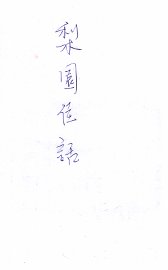 梨園佳話